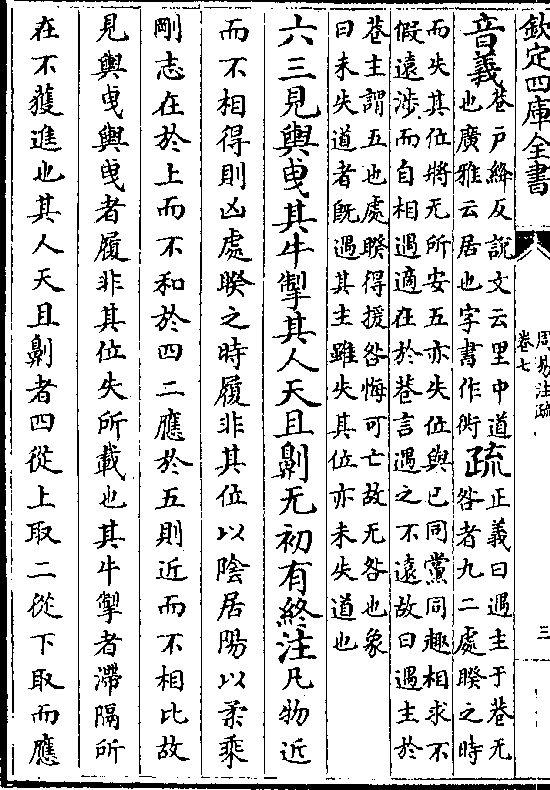 欽定四庫全書
周易注疏
卷七
三
音義
巷戶絳反說文云里中道
也廣雅云居也字書作衖
疏
正義曰遇主于巷无
咎者九二處睽之時
而失其位將无所安五亦失位與已同黨同趣相求不
假遠涉而自相遇適在於巷言遇之不遠故曰遇主於
巷主謂五也處睽得援咎悔可亡故无咎也象
曰未失道者旣遇其主雖失其位亦未失道也
六三見輿曳其牛掣其人天且劓无初有終注凡物近
而不相得則凶處睽之時履非其位以陰居陽以柔乘
剛志在於上而不和於四二應於五則近而不相比故
見輿曳輿曳者履非其位失所載也其牛掣者滯隔所
在不獲進也其人天且劓者四從上取二從下取而應